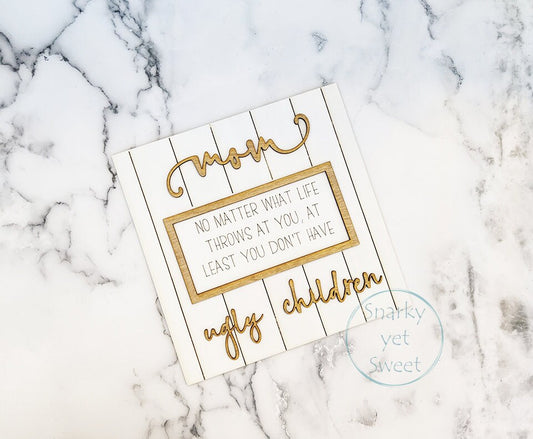 mom
NO MATTER WHAT LIFE
THROWS AT YOU, AT
LEAST YOU DON'T HAVE
ugly children
Snarky
yet
Sweet